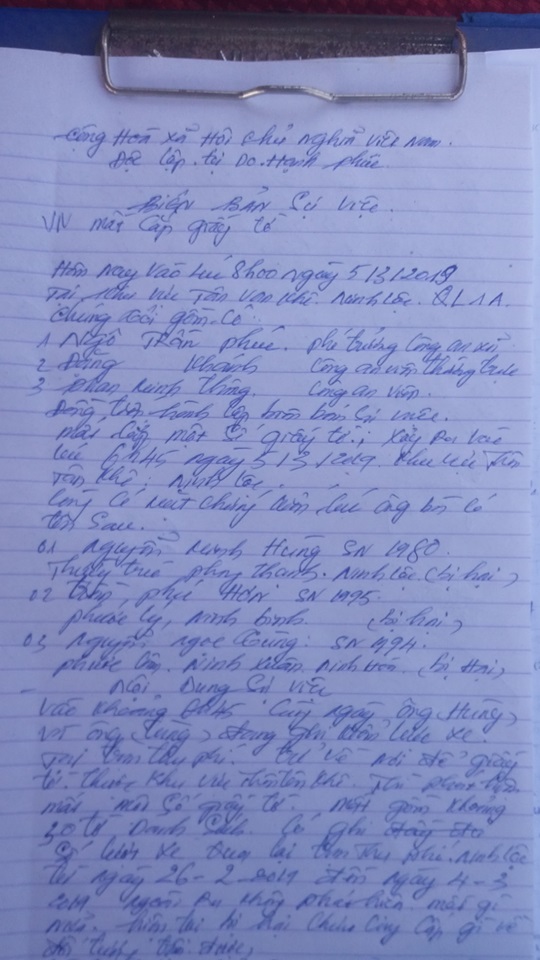 Cộng Hoà xã Hội chủ nghĩa Việt Nam.
Độc lập. tự Do. Hạnh phúc
BIÊN BẢN Sự việc.
V/v mất Cắp giấy tờ
Hôm nay vào lúc 8h00 ngày 5/3/2019
Tại khu vực Tân Khê. Ninh Lộc. QL1A.
Chúng tôi gồm có
1 Ngô Trần phúc. phó trưởng Công an xã
2 Đặng Khánh Công an viên thường trực
3 phan Minh Thông. Công an viên.
Đồng tiến hành lập biên bản Sự việc.
mất cắp một số giấy tờ, xảy ra vào
lúc 6h45 ngày 5/3/2019. khu vực
Tân Khê, Ninh Lộc.
Cùng Có chứng lúc ông bà có
tên Sau:
01 Nguyễn Minh Hùng SN 1980.
phong thạnh. Ninh Lộc (bị hại)
02 phúc SN 1995.
phước lý, ninh bình (bị hại)
03 Nguyễn Ngọc SN 94.
phước lâm. Ninh Xuân. Ninh Hòa. (bị Hại)
- Nội Dung Sự việc
Vào khoảng Cùng ngày ông Hùng,
và ông đang ghi xe.
Tại trạm thu phí. về nơi để giấy
tờ. thuộc khu vực Tân Khê. Thì phát hiện
mất một số giấy tờ. một gồm khoảng
30 tờ Danh Sách. Có ghi
Số lượt xe qua lại trạm Thu phí. Ninh Lộc
từ ngày 26-2-2019 đến ngày 4-3
2019 ngoài ra không phát hiện mất gì
nữa. hiện tại bị hại chưa Cung Cấp gì về
đối tượng